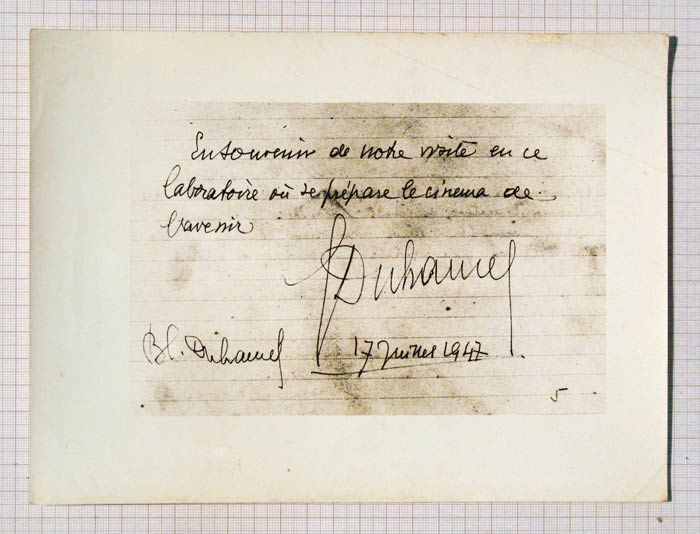 En souvenir de notre visite en ce
laboratoire où se prépare le cinema de
l'avenir
GDuhamel
Bl. Duhamel
17 Juillet 1947
5